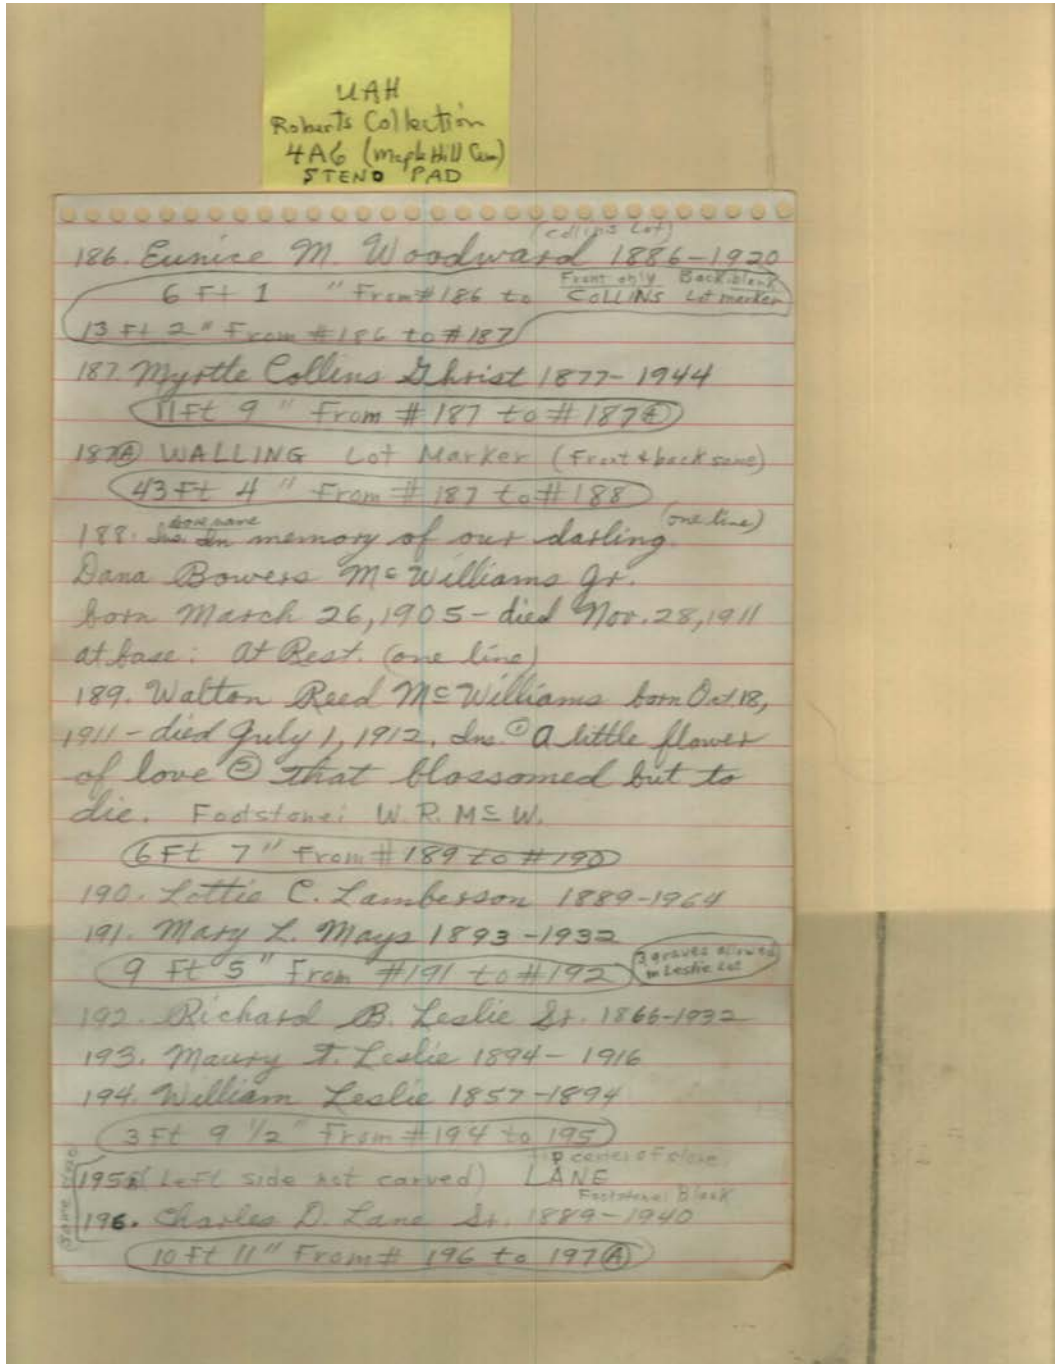 UAH
Roberts Collection
4A6 (Maple Hill Cem)
STENO PAD
(Collins Lot)
186. Eunice M. Woodward 1886-1920
6 Ft 1 " From #186 to COLLINS Lot marker
Front only Back blank
13 Ft 2" From #186 to #187
187. Myrtle Collins Ghrist 1877-1944
11 Ft 9 " From #187 to #187
187A WALLING Lot Marker (Front & back same)
43 Ft 4 " From #187 to #188
(one line)
188. Ins. In memory of our darling
Dana Bowers McWilliams Jr.
born March 26, 1905 - died Nov. 28, 1911
at base: At Rest. (one line)
189. Walton Reed McWilliams born Oct 18,
1911 - died July 1, 1912. Ins. ① A little flower
of love ② That blossomed but to
die. Footstone: W. R. McW.
6 Ft 7" From #189 to #190
190. Lottie C. Lamberson 1889-1964
191. Mary L. Mays 1893-1932
9 Ft 5" From #191 to #192
3 graves allowed
in Leslie Lot
192. Richard B. Leslie Sr. 1866-1932
193. Maury T. Leslie 1894-1916
194. William Leslie 1857-1894
3 Ft 9 1/2" From #194 to 195
top center of stone
195 Left side not carved) LANE
Footstone: Blank
196. Charles D. Lane Sr. 1889-1940
same
10 Ft 11" From # 196 to 197A